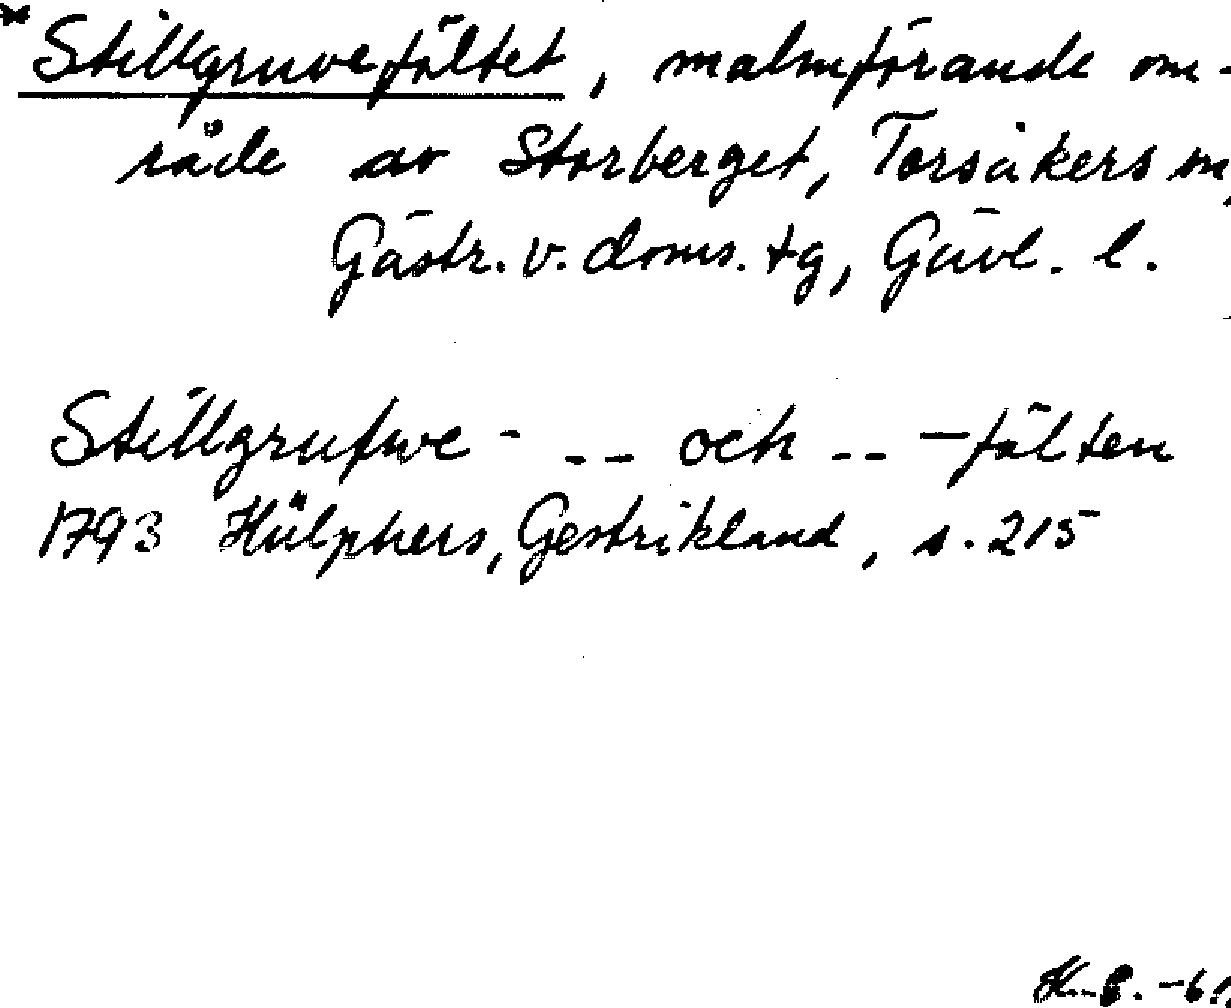 * Stillgruvefältet, malmförande om-
råde av Storberget, Torsåkers sn,
Gästr. v. doms. tg, Gävl. l.
Stillgrufwe - -- och -- -fälten
1793 Hülphers, Gestrikland, s. 215